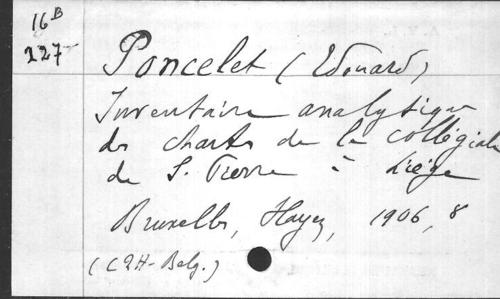 16B
227
Poncelet (Edouard)
Inventaire analytique
des chartes de la collégiale
de S. Pierre à Liége
Bruxelles, Hayez, 1906, 8
(CRH-Belg.)